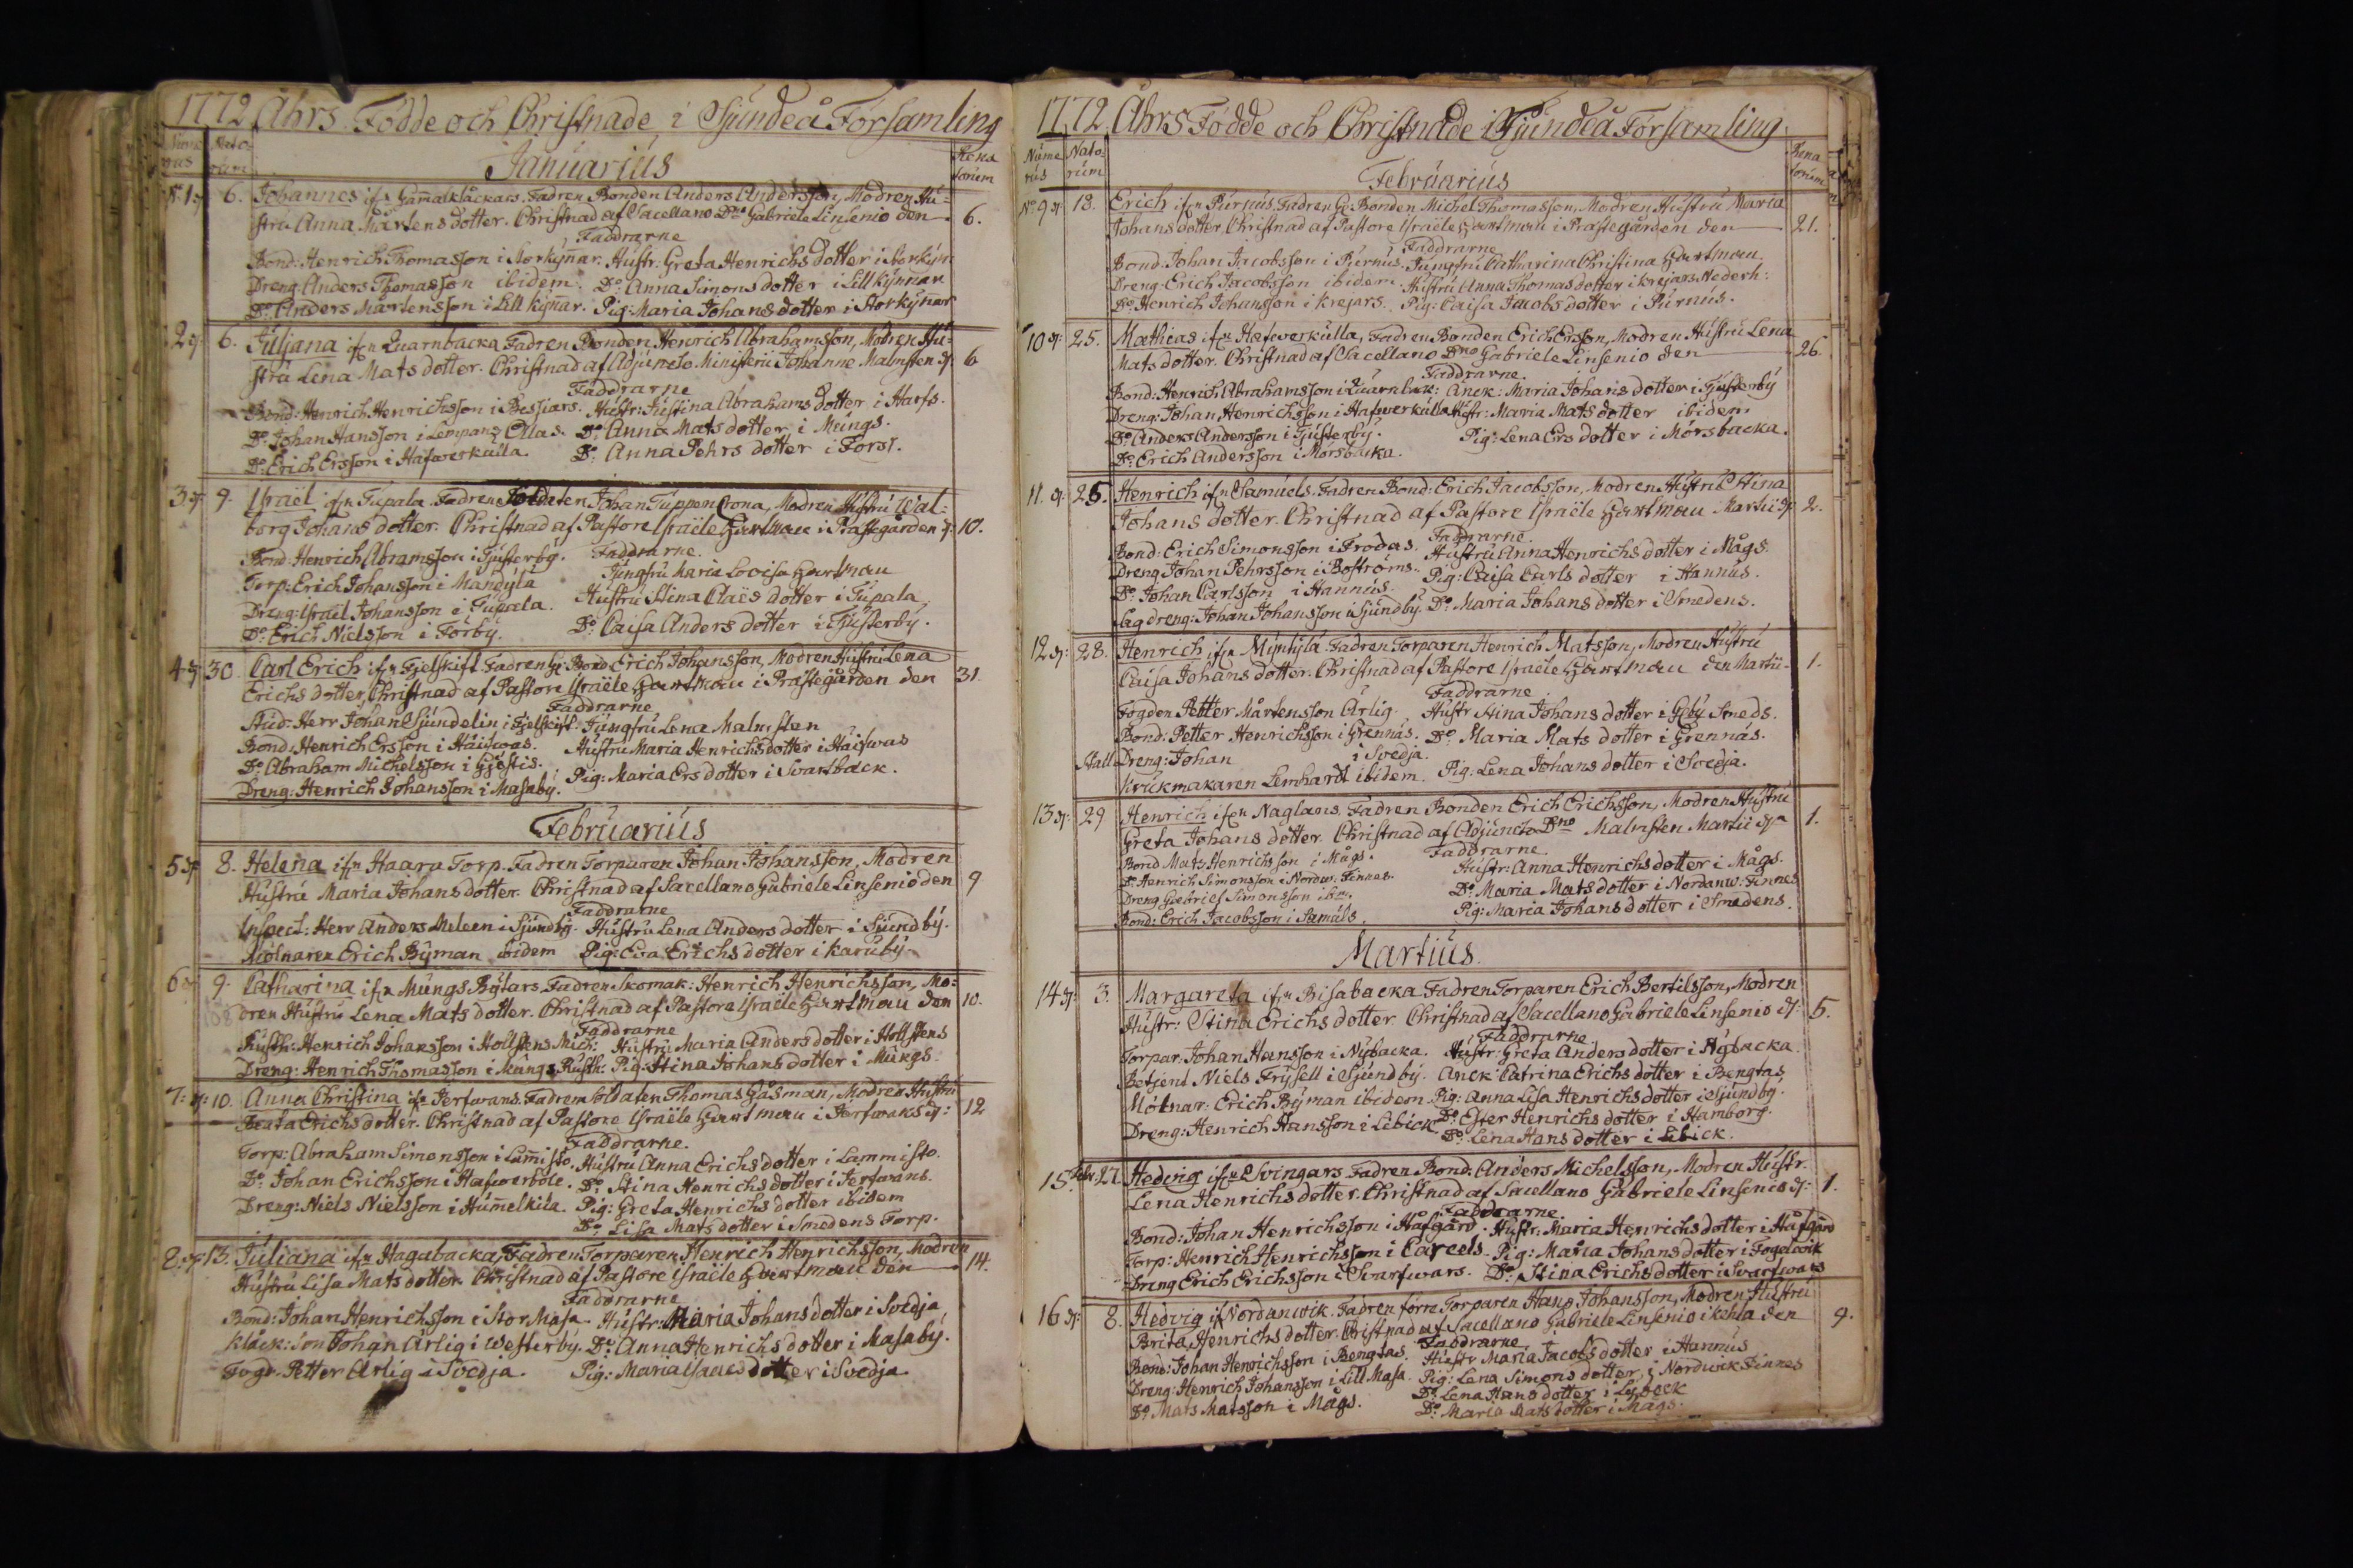 1772 Åhrs Födde och Christnade i Sjundeå Församling
Nume rus Nato rum Rena torum
Januarius
N:o 1 d: 6. Johannes ifr: Gam̄alklåckars. Fadren Bonden Anders Andersson, Modren Hu-
stru Anna Mårtens dotter. Christnad af Sacellano Dno Gabriele Linsenio den 6.
Faddrarne
Bond: Henrich Thomasson i Storkyn̄ar. Hustr: Greta Henrichs dotter i Storkyn:
Dreng: Anders Thomasson ibidem. Do: Anna Simons dotter i Lill kyn̄ar
Do: Anders Mårtensson i Lill kyn̄ar. Pig: Maria Johans dotter i Storkyn̄ar
2 d: 6. Juljana ifrn Quarnbacka Fadren Bonden Henrich Abrahamsson, Modren Hu-
stru Lena Mats dotter. Christnad af Adjuncto Ministerii Johanne Malmsten d: 6
Faddrarne
Bond: Henrich Henrichsson i Bössiars. Hustr: Justina Abrahams dotter i Harfs.
Do: Johan Hansson i Lempans Ollas. Do: Anna Mats dotter i Mungs.
Do: Erich Ersson i Hafwerkulla. Do: Anna Pehrs dotter i Forss.
3 d: 9. Israël ifrn Tupala. Fadren Soldaten Johan Tuppen Crona, Modren Hustru Wal-
borg Johans dotter. Christnad af Pastore Israële Hartman i Prästegården d: 10.
Bond: Henrich Abramsson i Tjusterby. Faddrarne.
Torp: Erich Johansson i Mandyla Jungfru Maria Lovisa Hartman
Dreng: Israel Johansson i Tupala. Hustru Stina Claës dotter i Tupala
Do: Erich Nielsson i Förby. Do: Caisa Anders dotter i Tjusterby.
4 d: 30. Carl Erich ifrn Fjelskift Fadren G: Bond Erich Johansson, Modren Hustru Lena
Erichs dotter, Christnad af Pastore Israële Hartman i Prästegården den 31.
Faddrarne
Stud: Herr Johan Sjundelin i Fjelskift. Jungfru Lena Malmsten
Bond: Henrich Ersson i Häifwas. Hustru Maria Henrichs dotter i Häifwas
Do: Abraham Michelsson i Gjöstis. Pig: Maria Ers dotter i Svartbäck.
Dreng: Henrich Johansson i Masaby.
Februarius
5 d: 8. Helena ifrn Haara Torp. Fadren Torparen Johan Johansson, Modren
Hustru Maria Johans dotter. Christnad af Sacellano Gabriele Linsenio den 9
Faddrarne
Inspect: Herr Anders Meleen i Sjundby. Hustru Lena Anders dotter i Sjundby.
Mölnaren Erich Byman ibidem Pig: Eva Erichs dotter i Karuby
6 d: 9. Catharina ifrn Mungs Rytars Fadren Skomak: Henrich Henrichsson, Mo-
dren Hustru Lena Mats dotter. Christnad af Pastore Israële Hartman den 10.
Faddrarne
Rusth: Henrich Johansson i Hollstens Mich: Hustru: Maria Anders dotter i Hollstens
Dreng: Henrich Thomasson i Mungs Rusth: Pig: Stina Johans dotter i Mungs.
7: d: 10. Anna Christina ifrn Jerfwans. Fadren Soldaten Thomas Gåsman, Modren Hustru
Beata Erichs dotter. Christnad af Pastore Israële Hartman i Jerfwans d: 12
Faddrarne.
Torp: Abraham Simonsson i Lam̄isto. Hustru Anna Erichs dotter i Lammisto.
Do: Johan Erichsson i Hafwerböle. Do: Stina Henrichs dotter i Jerfwans.
Dreng: Niels Nielsson i Hum̄elkila. Pig: Greta Henrichs dotter ibidem
Do: Lisa Mats dotter i Smedens Torp.
8: d: 13. Juliana ifrn Hagabacka, Fadren Torparen Henrich Henrichsson, Modren
Hustru Lisa Mats dotter. Christnad af Pastore Israële Hartman den 14.
Faddrarne
Bond: Johan Henrichsson i Stor Masa. Hustr: Maria Johans dotter i Svedja
Klåck: Son Johan Ärlig i Westerby. Do: Anna Henrichs dotter i Masaby.
Fogd: Petter Ärlig i Svedja. Pig: Maria Isaacs dotter i Svedja
1772 Åhrs Födde och Christnade i Sjundeå Församling.
Nume rus Nato rum Rena torum
Februarius
No 9 d: 18. Erich ifrn Purnus. Fadren G: Bonden Michel Thomasson, Modren Hustru Maria
Johans dotter, Christnad af Pastore Israële Hartman i Prästegården den 21.
Faddrarne
Bond: Johan Jacobsson i Purnus. Jungfru Catharina Christina Hartman
Dreng: Erich Jacobsson ibidem Hustru Anna Thomas dotter i Krejars Nederh:
Do: Henrich Johansson i Krejars. Pig: Caisa Jacobs dotter i Purnus.
10 d: 25. Mathias ifrn Hafwerkulla, Fadren Bonden Erich Ersson, Modren Hustru Lena
Mats dotter. Christnad af Sacellano Dno Gabriele Linsenio den 26.
Faddrarne.
Bond: Henrich Abrahamsson i Quarnback: Änck: Maria Johans dotter i Tjusterby
Dreng: Johan Henrichsson i Hafwerkulla Hustr: Maria Mats dotter ibidem
Do: Anders Andersson i Tjusterby. Pig: Lena Ers dotter i Mörsbacka.
Do: Erich Andersson i Mörsbacka.
11. d: 25. Henrich ifrn Samuels. Fadren Bond: Erich Jacobsson, Modren Hustru Stina
Johans dotter. Christnad af Pastore Israële Hartman Martii d: 2.
Faddrarne.
Bond: Erich Simonsson i Frodas. Hustru Anna Henrichs dotter i Mågs.
Dreng: Johan Pehrsson i Boströms. Pig: Caisa Carls dotter i Hannus.
Do: Johan Carlsson i Hannus.
Lagdreng: Johan Johansson i Sjundby. Do: Maria Johans dotter i Smedens.
12 d: 28. Henrich ifrn Myntylä Fadren Torparen Henrich Matsson, Modren Hustru
Caisa Johans dotter. Christnad af Pastore Israële Hartman den Martii 1.
Faddrarne
Fogden Petter Mårtensson Ärlig. Hustr Stina Johans dotter i Gby Smeds.
Bond: Petter Henrichsson i Grennäs. Do: Maria Mats dotter i Grennäs.
Stall Dreng: Johan i Svedja.
Krukmakaren Lemhardt ibidem. Pig: Lena Johans dotter i Svedja.
13 d: 29 Henrich ifrn Naglans. Fadren Bonden Erich Erichsson, Modren Hustru
Greta Johans dotter. Christnad af Adjuncto Dno Malmsten Martii d: 1.
Faddrarne.
Bond Mats Henrichsson i Mågs. Hustr: Anna Henrichs dotter i Mågs.
Do Henrich Simonsson i Nordw: Finnes. Do: Maria Mats dotter i Nordanw: Finnes
Dreng Gabriel Simonsson ibm. Pig: Maria Johans dotter i Smedens.
Bond: Erich Jacobsson i Samuls.
Martius.
14 d: 3. Margareta ifrn Bisabacka Fadren Torparen Erich Bertilsson, Modren
Hustr: Stina Erichs dotter. Christnad af Sacellano Gabriele Linsenio d: 5.
Faddrarne.
Torpar: Johan Hansson i Nybacka. Hustr: Greta Anders dotter i Nybacka.
Betjent Niels Frysell i Sjundby. Änck: Catrina Erichs dotter i Bengtas
Mölnar: Erich Byman ibidem. Pig: Anna Lisa Henrichs dotter i Sjundby.
Dreng: Henrich Hansson i Libick Do: Ester Henrichs dotter i Hamborg.
Do: Lena Hans dotter i Libick.
15. Febr: 27. Hedvig ifrn Svingars Fadren Bond: Anders Michelsson, Modren Hustr.
Lena Henrichs dotter. Christnad af Sacellano Gabriele Linsenio d: 1.
Faddrarne.
Bond: Johan Henrichsson i Håfgård. Hustr: Maria Henrichs dotter i Håfgård
Torp: Henrich Henrichsson i Carcels. Pig: Maria Johans dotter i Fogelwik
Dreng Erich Erichsson i Svartwars. Do: Stina Erichs dotter i Svartwars
16 d: 8. Hedvig if: Nordanwik. Fadren förre Torparen Hans Johansson, Modren Hustru
Brita, Henrichs dotter. Christnad af Sacellano Gabriele Linsenio i Kehla den 9.
Faddrarne
Bond: Johan Henrichsson i Bengtas. Hustr Maria Jacobs dotter i Hannus
Dreng: Henrich Johansson i Lill Masa. Pig: Lena Simons dotter, i Nordwik Finnes
Do Mats Matsson i Mågs. Do: Lena Hans dotter i Lybeck
Do: Maria Mats dotter i Mågs.